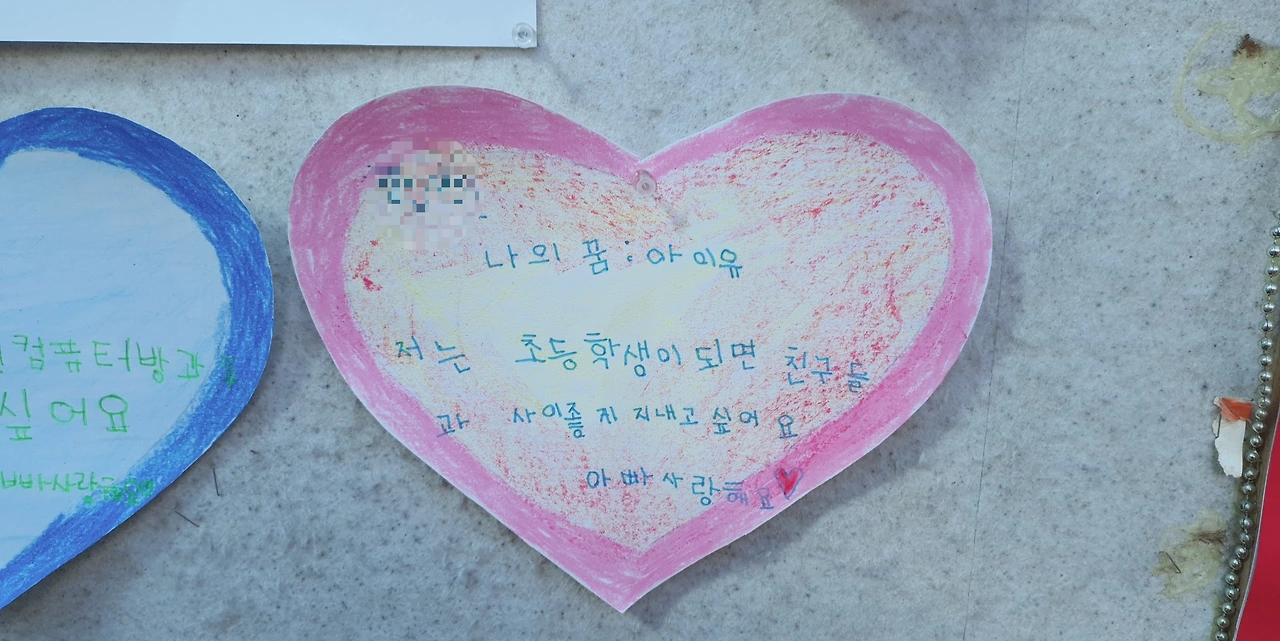 컴퓨터방과
싶어요
빠사랑해요
나의 꿈 : 아이유
저는 초등학생이 되면 친구들
과 사이좋지 지내고 싶어요
아빠사랑해요